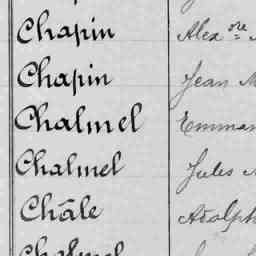 Chapin Alex.re
Chapin Jean M
Chalmel Emman
Chalmel Jules
Châle Adolph
Chalmel